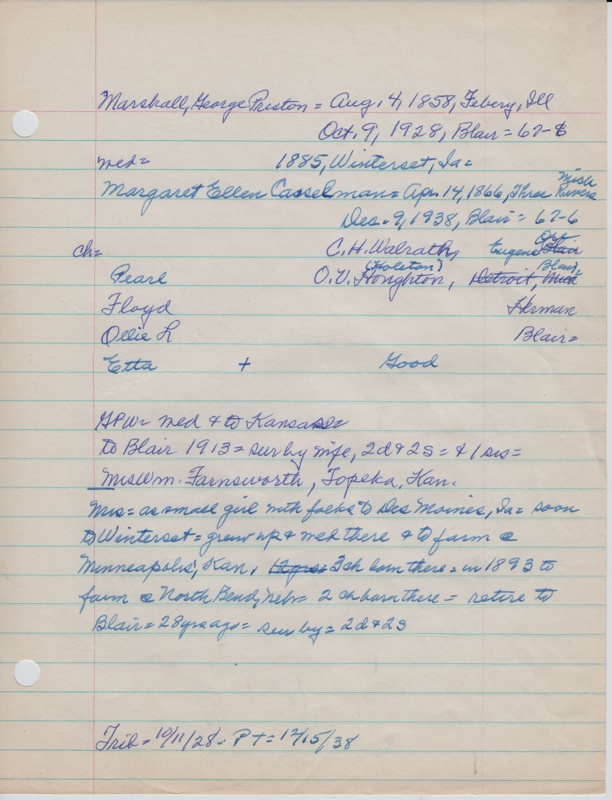 Marshall, George Preston = Aug. 4, 1858, Febery, Ill
Oct. 9, 1928, Blair = 67-6
med = 1885, Winterset, Ia =
Mich
Margaret Ellen Casselman = Apr. 14, 1866, Three Rivers
Dec. 9, 1938, Blair = 67-6
Ore
ch = C.H. Walrath, Eugene Blair
(Holeton) Blair,
Pearl O.V. Houghton, Detroit, Mich
Floyd Herman
Ollie L Blair =
Etta + Good
GPW = med & to Kansas =
to Blair 1913 = sur by wife, 2d & 2s = & 1 sis =
Mrs Wm. Farnsworth, Topeka, Kan.
Mrs = as small girl with folks to Des Moines, Ia = soon
to Winterset = grew up & med there & to farm @
Minneapolis, Kan. 3 ch born there = in 1893 to
farm @ North Bend, Neb = 2 ch born there = retire to
Blair = 28 yrs ago = sur by = 2d & 2s
Trib - 10/11/28 - P T = 12/15/38